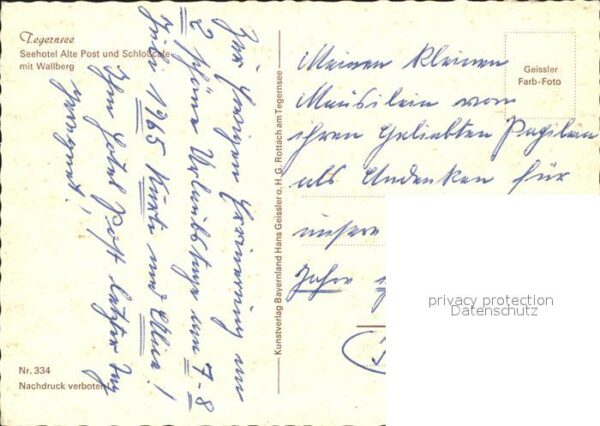 Tegernsee
Seehotel Alte Post und Schloßcafe
mit Wallberg
Zur Erinnerung an
2 schöne Urlaubstage am 7-8
Juni 1965 Kurti und
Im Hotel Post letzter Tag
Nr. 334
Nachdruck verboten
Kunstverlag Bayernland Hans Geissler o.H.G. Rottach am Tegernsee
Geissler
Farb-Foto
Meinen kleinen
Mäusilein von
ihren Geliebten
als Andenken für
unsere
Jahre
privacy protection
Datenschutz